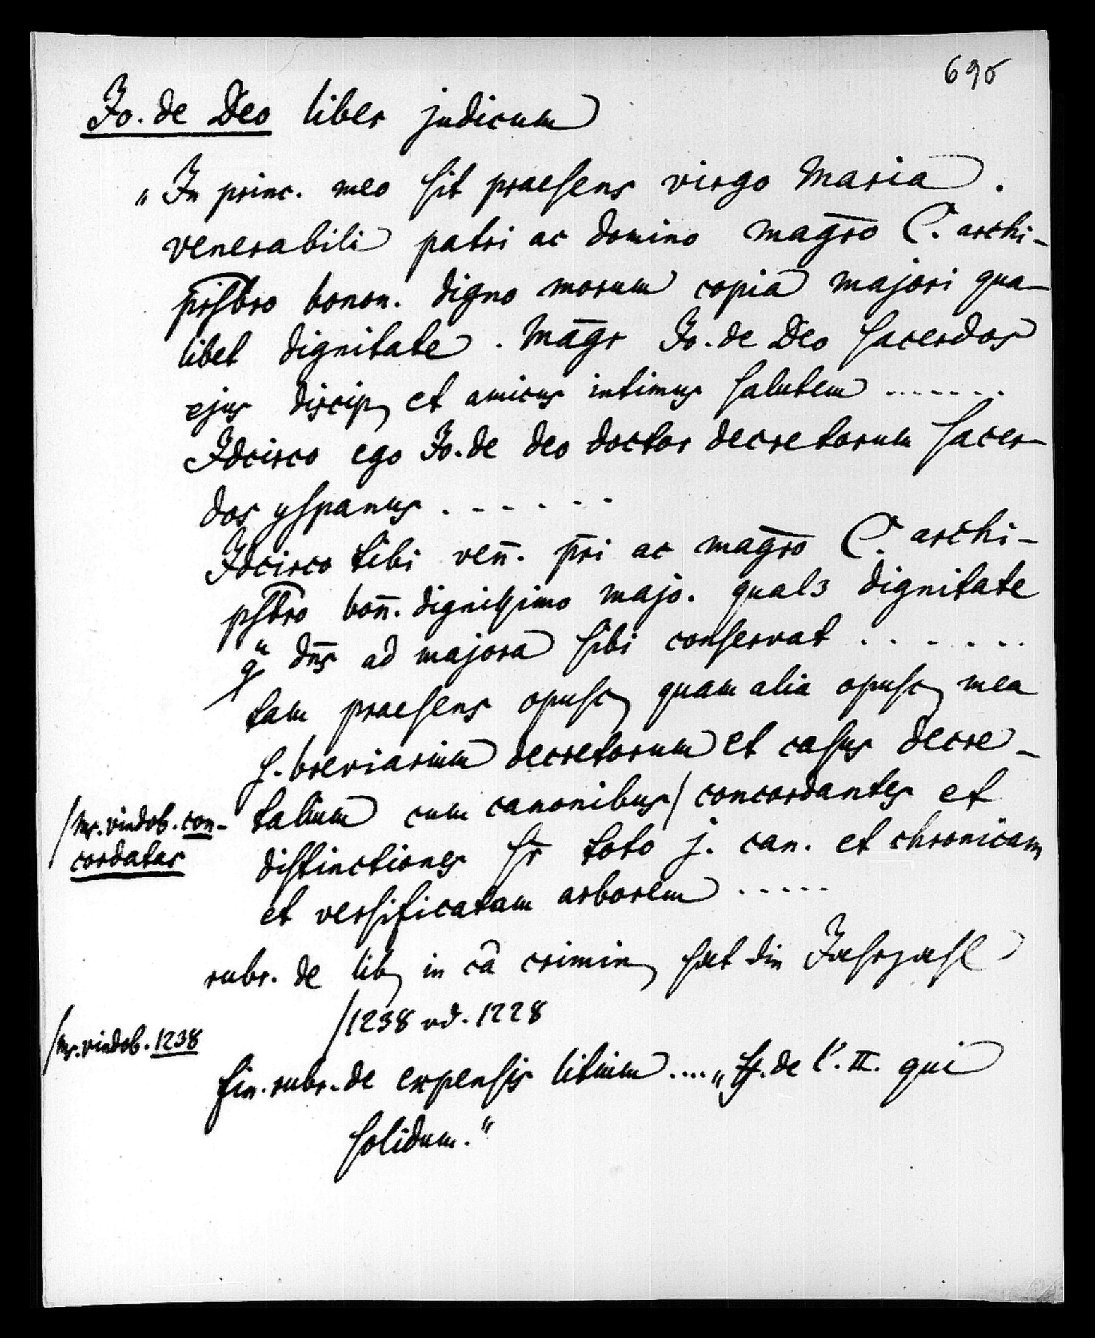 695
Jo. de Deo liber judicum
„In princ. meo sit praesens virgo Maria.
venerabili patri ac domino mag̅ro C. archi-
prs̅b̅ro bonon. digno morum copia majori qua-
libet dignitate. Mag̅r Jo. de Deo sacerdos
ejus discip. et amicus intimus salutem ......
Idcirco ego Jo. de deo doctor decretorum sacer-
dos yspanus ......
Idcirco tibi ven̅. p̅ri ac mag̅ro C. archi-
ps̅b̅ro bon̅. dignissimo majo. qualз dignitate
dn̅s ad majora sibi conservat ......
tam praesens opusc. quam alia opusc. mea
s. breviarium decretorum et casus decre-
talium cum canonibus/ concordantes et
/Ms. vindob. con-
cordatas
distinctiones sr̅ toto j. can. et chronicam
et versificatam arborem .....
rubr. de lib. in câ crimin. hat die Jahrzahl
/1238 od. 1228
/Ms. vindob. 1238
fin. rubr. de expensis litium .... „ff. de l. II. qui
solidum."